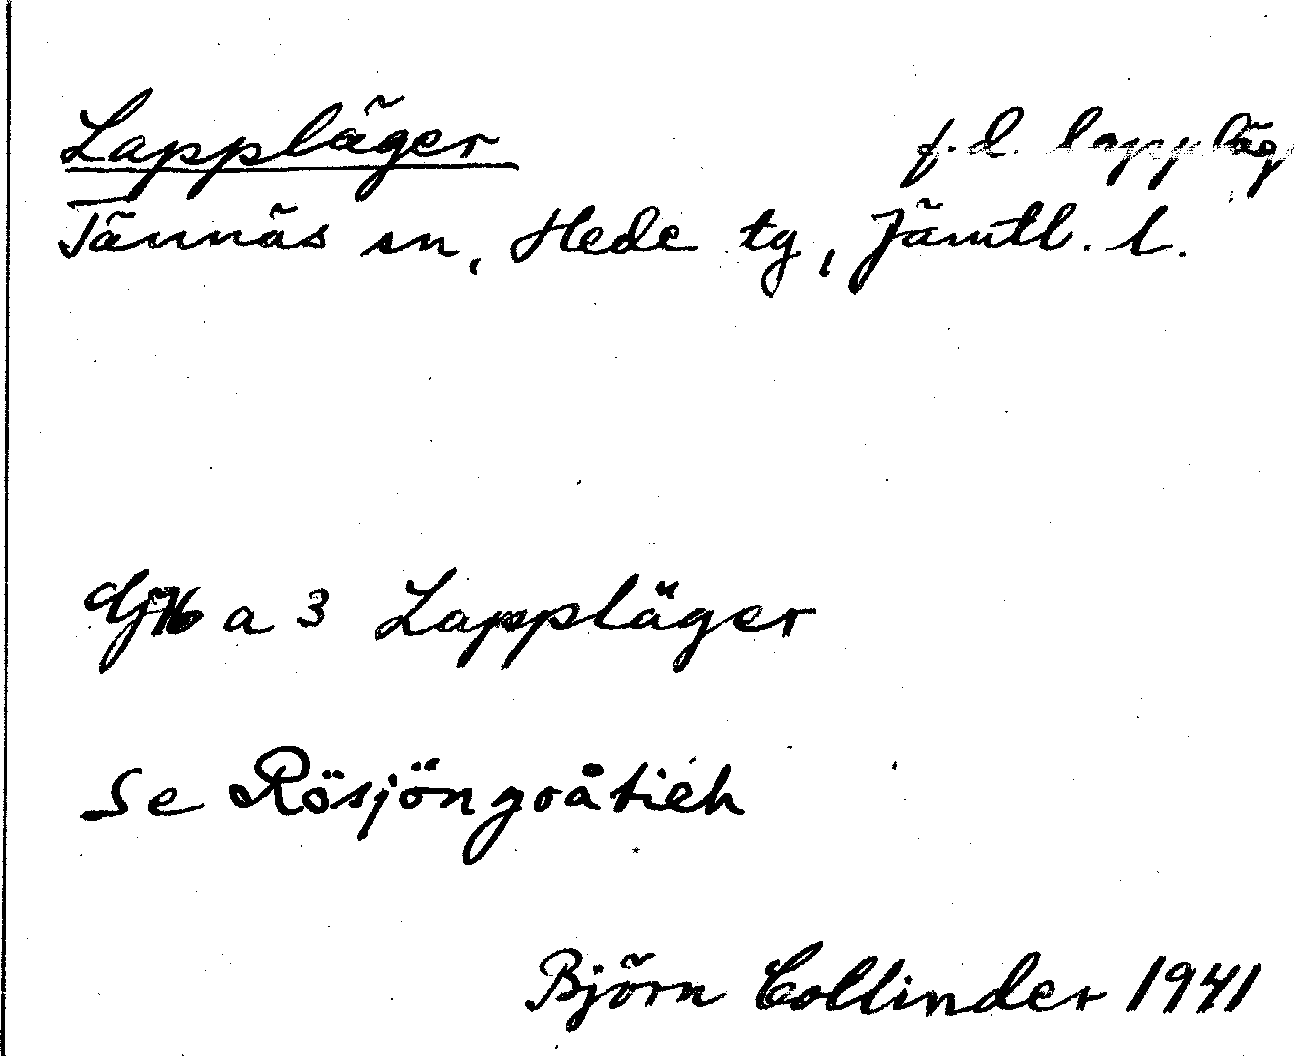 Lappläger f.d. lappläg
Tännäs sn, Hede tg, Jämtl. l.
a 3 Lappläger
Se Rösjöngoåtieh
Björn Collinder 1941